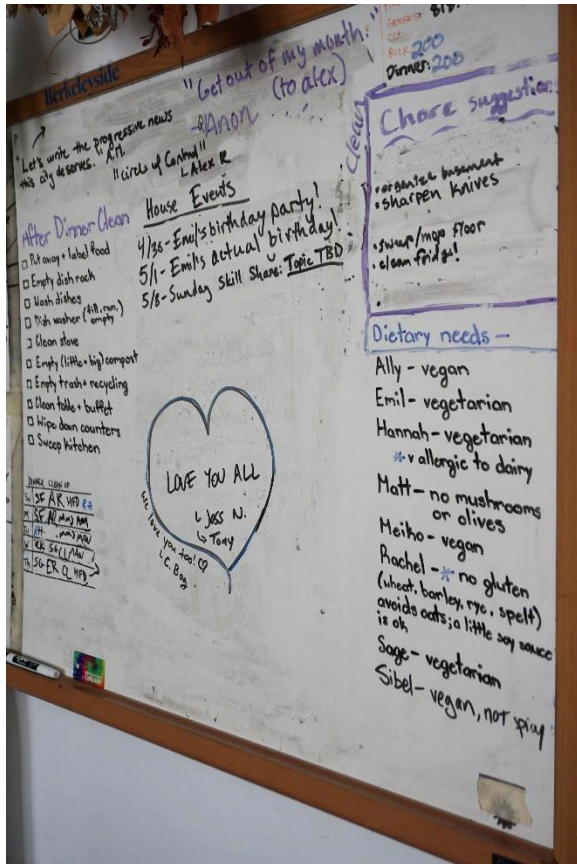 Berkeleyside
"Get out of my mouth."
(to alex)
-Anon
"Let's write the progressive news
this city deserves." A.M.
"Circle of Control"
Alex R
GROCERIES
CSA:
BULK: 200
Dinner: 200
Clean
Chore suggestions
• organize basement
• sharpen knives
• sweep/mop floor
• clean fridge!
After Dinner Clean
Put away + label food
Empty dish rack
Wash dishes
Dish washer (fill, run, empty)
Clean stove
Empty (little + big) compost
Empty trash + recycling
Clean table + buffet
Wipe down counters
Sweep kitchen
House Events
4/30 - Emil's birthday party!
5/1 - Emil's actual birthday!
5/8 - Sunday Skill Share: Topic TBD
DINNER CLEAN UP
Su SF AR HFD RH
M SF AR MMJ
Tu RH MMJ
W ER SG CL
Th SG ER CL HFD
LOVE YOU ALL
Jess N.
Tony
We love you too! ♡
C. Bag
Dietary needs —
Ally - vegan
Emil - vegetarian
Hannah - vegetarian
* v allergic to dairy
Matt - no mushrooms
or olives
Meiko - vegan
Rachel - * no gluten
(wheat, barley, rye, spelt)
avoids oats; a little soy sauce
is ok
Sage - vegetarian
Sibel - vegan, not spicy